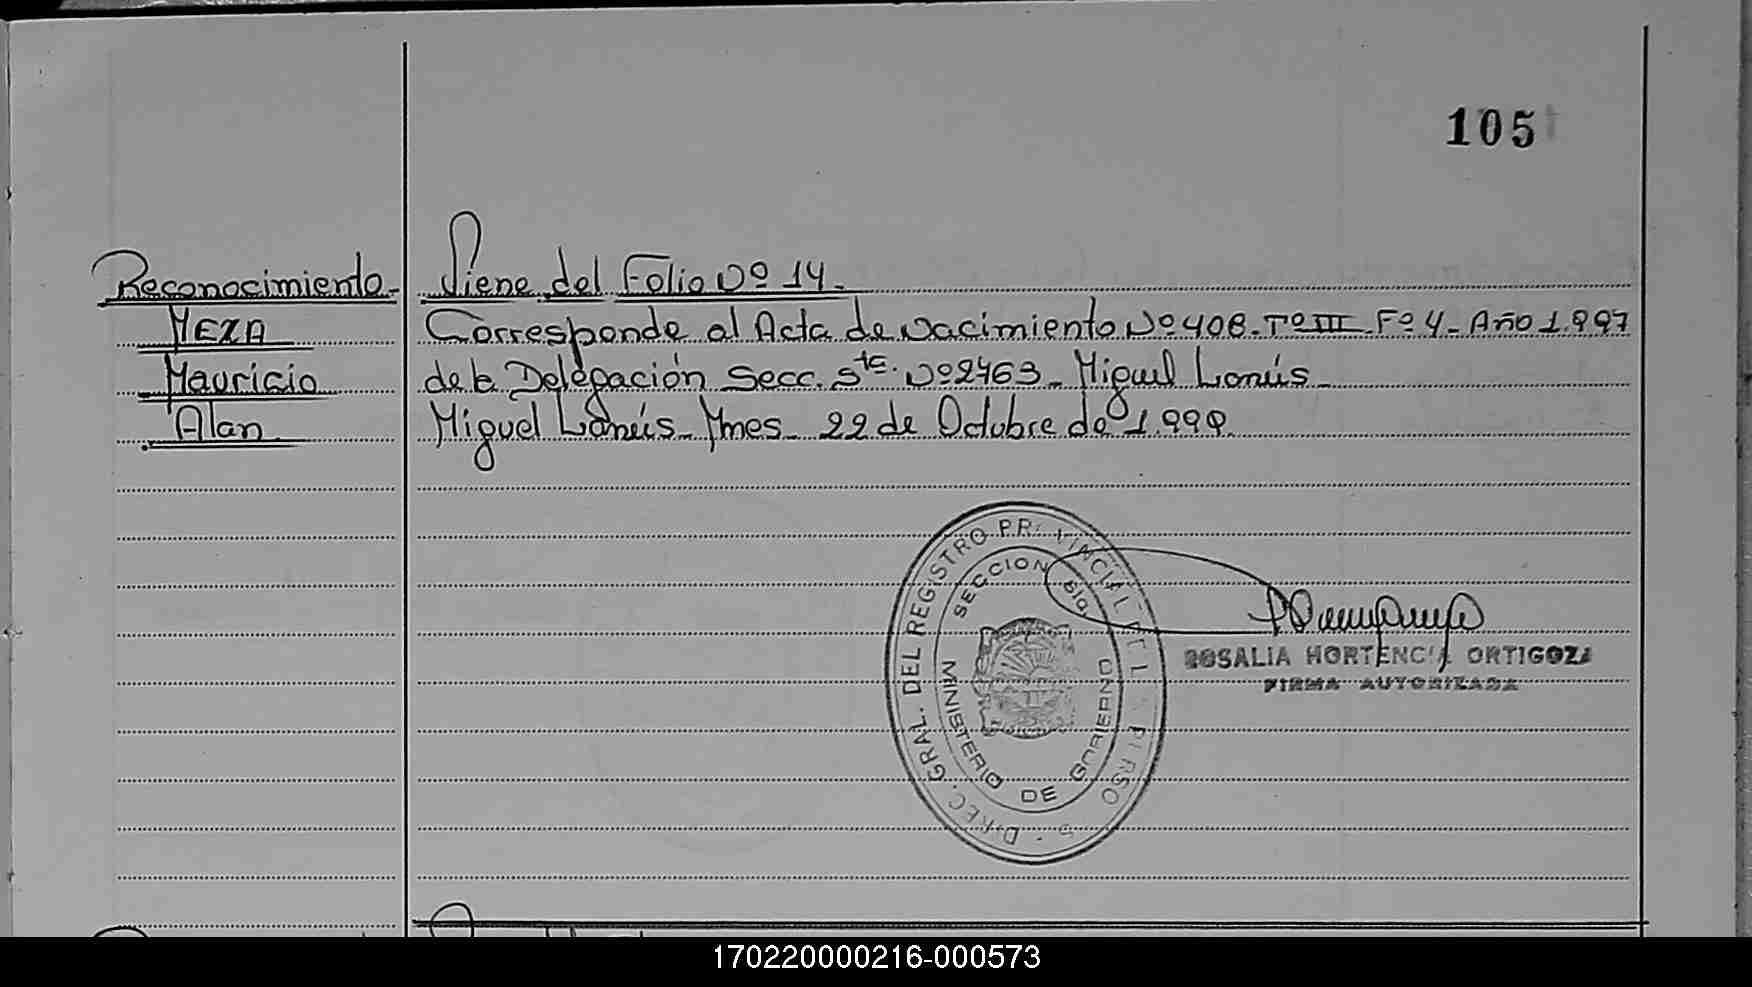 105
Reconocimiento-
Viene del Folio Nº 14.-
MEZA
Corresponde al Acta de Nacimiento Nº 408- Tº III- Fº 4- Año 1.997
Mauricio
de la Delegación Secc. Sta. Nº 2463- Miguel Lanús-
Alan
Miguel Lanús- Mnes- 22 de Octubre de 1.999.
DIREC. GRAL. DEL REGISTRO PR VINCIAL PERSO S.
SECCION
MINISTERIO DE GOBIERNO
ROSALIA HORTENCIA ORTIGOZA
FIRMA AUTORIZADA
170220000216-000573